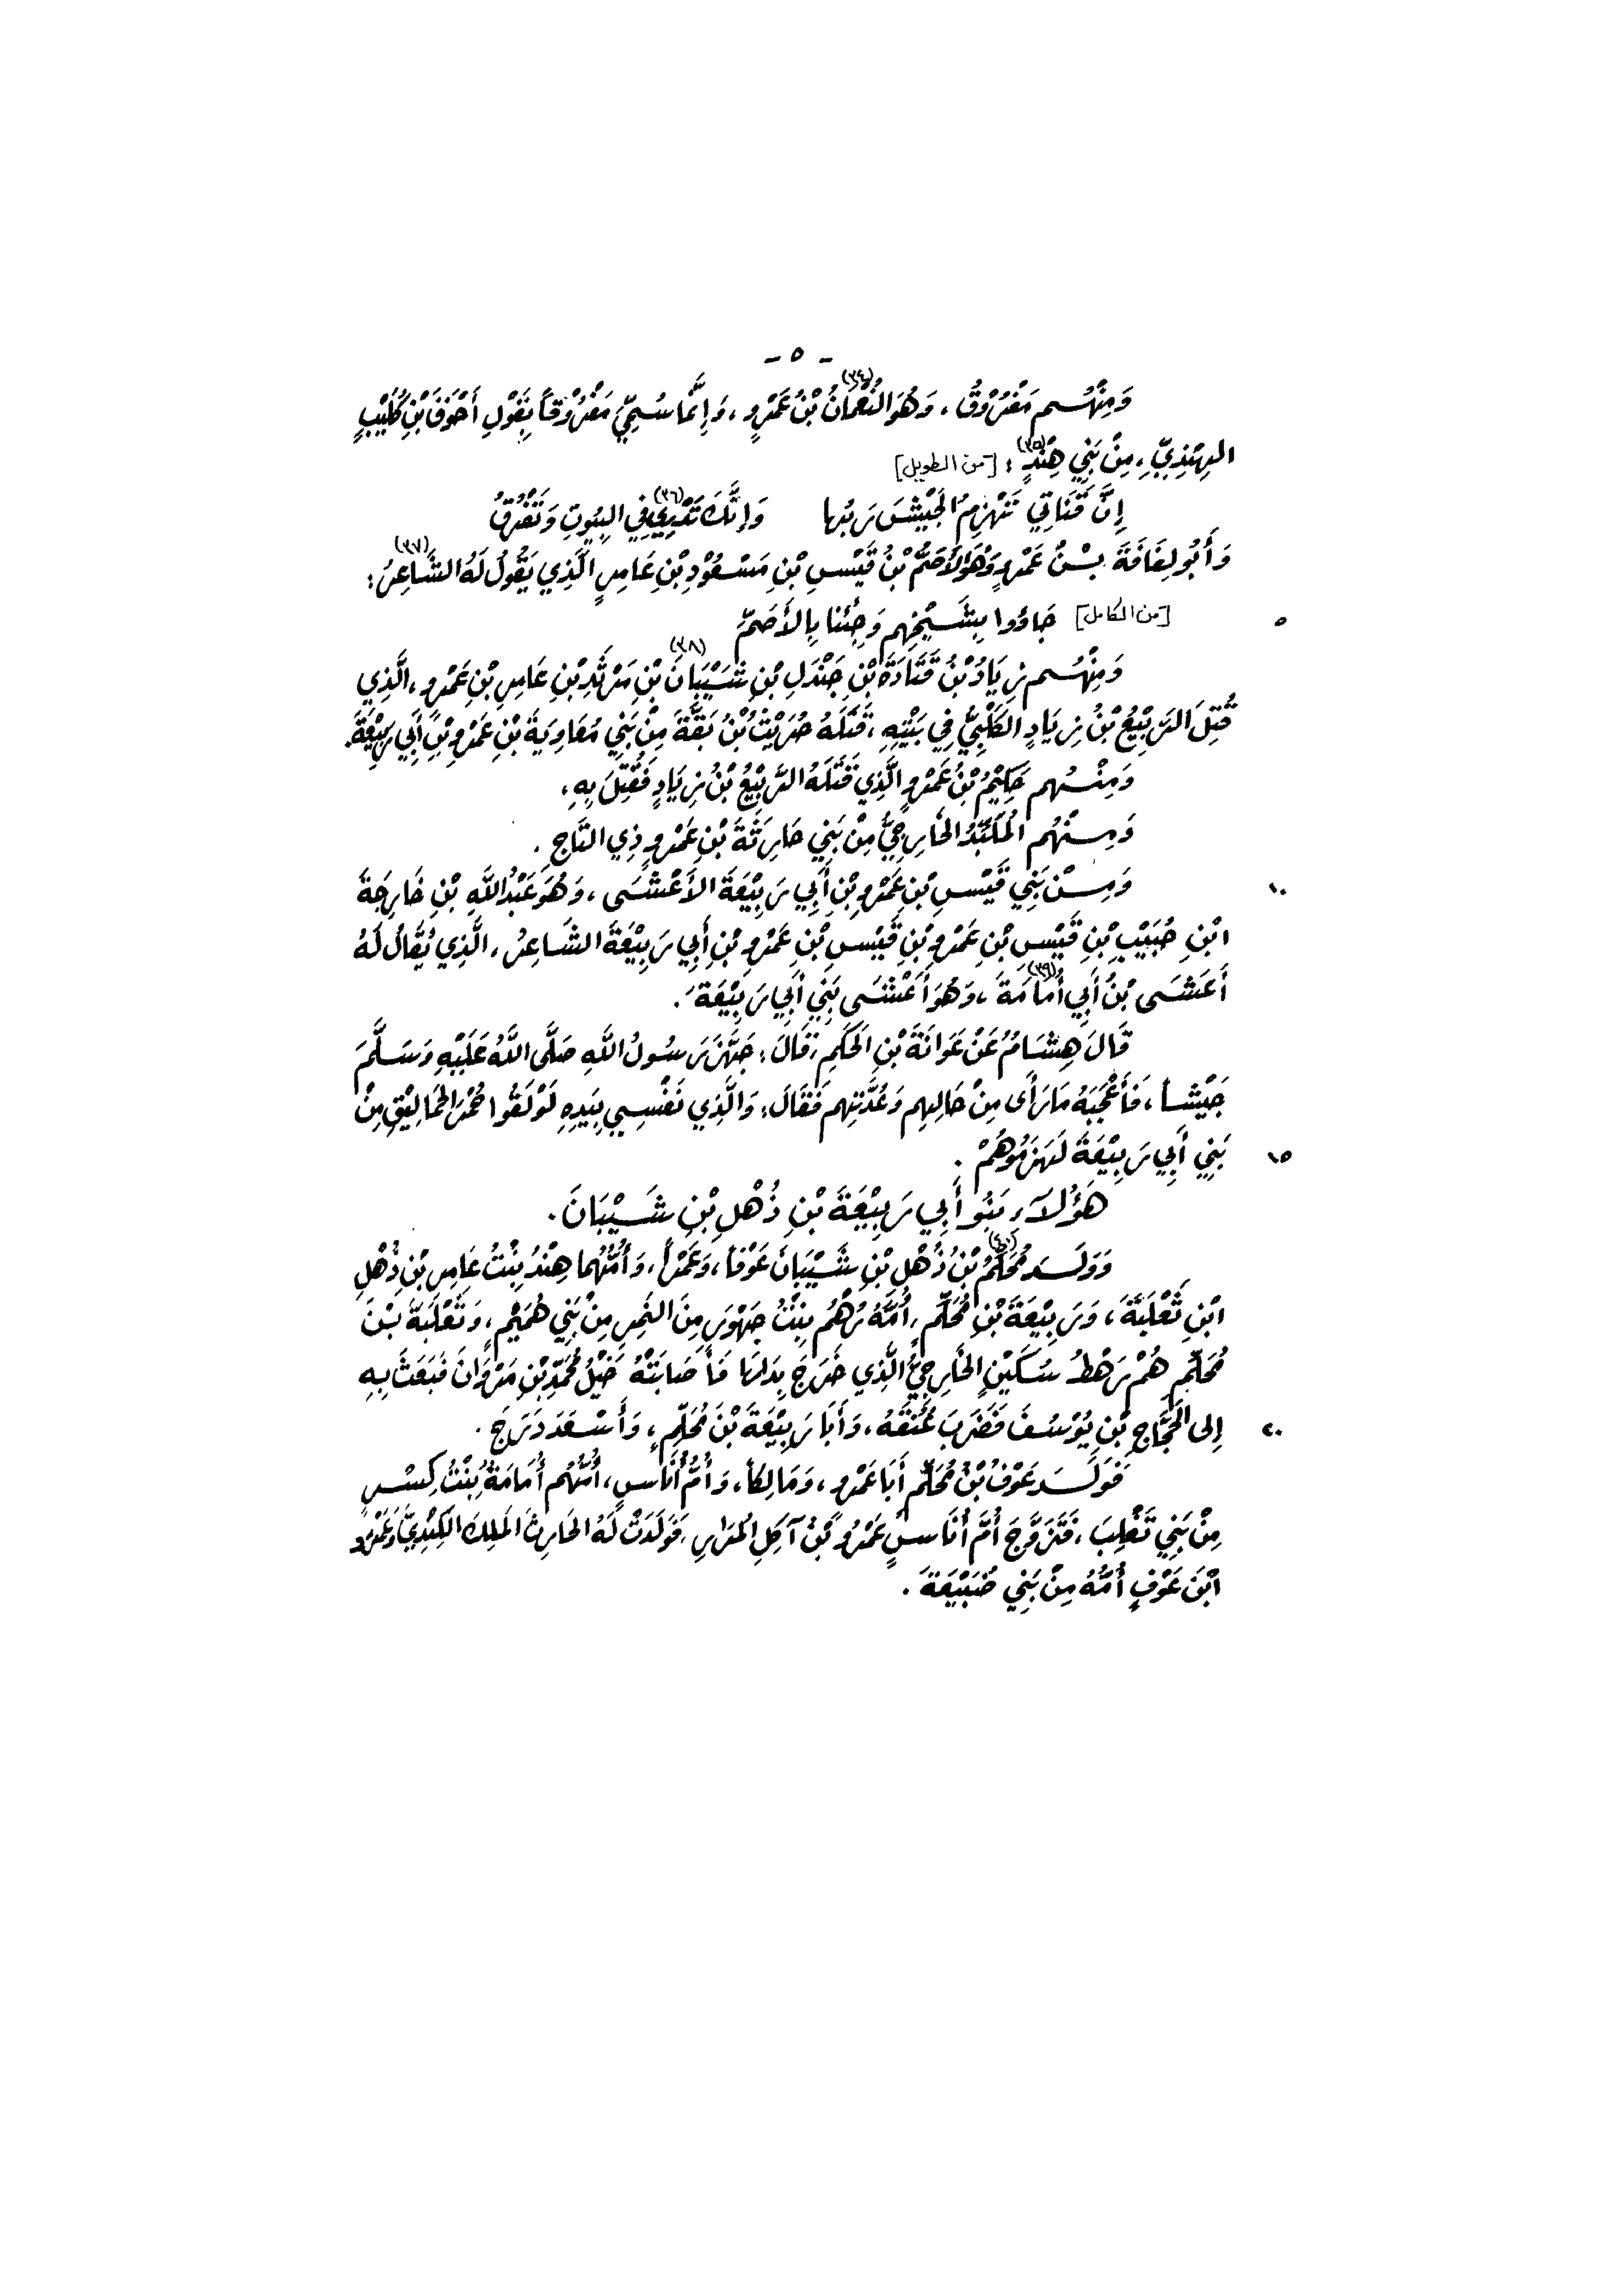 - ٥ -
وَمِنْهُم مَفْرُوْقُ، وَهُوَ النُّعْمَانُ بْنُ عَمْرٍو، (٣٤) وَإِنَّمَا سُمِّيَ مَفْرُوْقاً بِقَوْلِ أَحْوَفَ بْنِ كُلَيْبٍ
الهِنْدِيِّ، مِنْ بَنِي هِنْدٍ (٣٥) : [من الطويل]
إِنَّ قَنَاتِي تَهْزِمُ الجَيْشَ رَبُّها وَإِنَّكَ تَدْرِي (٣٦) فِي البُيُوتِ وَتَفْرُقُ
وَأَبُو لِفَافَةَ بْنُ عَمْرٍو وَهُوَ الأَصَمُّ بْنُ قَيْسِ بْنِ مَسْعُوْدِ بْنِ عَامِرٍ الَّذِي يَقُولُ لَهُ الشَّاعِرُ (٣٧) :
٥ [من الكامل] جَاؤُوا بِشَيْخِهِم وَجِئْنا بِالأَصَمِّ
وَمِنْهُم زِيَادُ بْنُ قَتَادَةَ بْنِ جَنْدَلِ بْنِ شَيْبَانَ (٣٨) بْنِ مَرْثَدِ بْنِ عَامِرِ بْنِ عَمْرٍو، الَّذِي
قُتِلَ الرَّبِيْعُ بْنُ زِيَادٍ الكَلْبِيُّ فِي بَيْتِهِ، قَتَلَهُ حُرَيْثُ بْنُ بَقَّةَ مِنْ بَنِي مُعَاوِيَةَ بْنِ عَمْرِو بْنِ أَبِي رَبِيْعَةَ.
وَمِنْهُم حَكِيْمُ بْنُ عَمْرٍو الَّذِي قَتَلَهُ الرَّبِيْعُ بْنُ زِيَادٍ فَقُتِلَ بِهِ،
وَمِنْهُم المُلَبَّدُ الخَارِجِيُّ مِنْ بَنِي حَارِثَةَ بْنِ عَمْرٍو ذِي التَّاجِ.
١٠ وَمِنْ بَنِي قَيْسِ بْنِ عَمْرِو بْنِ أَبِي رَبِيْعَةَ الأَعْشَى، وَهُوَ عَبْدُ اللَّهِ بْنِ خَارِجَةَ
ابْنِ حُبَيْبِ بْنِ قَيْسِ بْنِ عَمْرِو بْنِ قَيْسِ بْنِ عَمْرِو بْنِ أَبِي رَبِيْعَةَ الشَّاعِرُ، الَّذِي يُقَالُ لَهُ
أَعْشَى بْنُ أَبِي أُمَامَةَ (٣٩)، وَهُوَ أَعْشَى بَنِي أَبِي رَبِيْعَةَ.
قَالَ هِشَامُ عَنْ عَوَانَةَ بْنِ الحَكَمِ، قَالَ: جَهَّزَ رَسُولُ اللَّهِ صَلَّى اللَّهُ عَلَيْهِ وَسَلَّمَ
جَيْشاً، فَأَعْجَبَهُ مَا رَأَى مِنْ حَالِهِم وَعُدَّتِهِم فَقَالَ: وَالَّذِي نَفْسِي بِيَدِهِ لَوْ لَقُوا حُمْرَ الحَمَالِيْقِ مِنْ
١٥ بَنِي أَبِي رَبِيْعَةَ لَهَزَمُوهُمْ.
هَؤُلَاءِ بَنُو أَبِي رَبِيْعَةَ بْنِ ذُهْلِ بْنِ شَيْبَانَ.
وَوَلَدَ مُحَلِّمُ (٤٠) بْنُ ذُهْلِ بْنِ شَيْبَانَ عَوْفاً، وَعَمْراً، وَأُمُّهُما هِنْدُ بِنْتُ عَامِرِ بْنِ ذُهْلِ
ابْنِ ثَعْلَبَةَ، وَرَبِيْعَةَ بْنِ مُحَلِّمٍ، أُمُّهُ رُهْمُ بِنْتُ جَهْوَرٍ مِنَ النَّمِرِ مِنْ بَنِي هُمَيْمٍ، وَثَعْلَبَةَ بْنَ
مُحَلِّمٍ هُمْ رَهْطُ سُكَيْنٍ الخَارِجِيِّ الَّذِي خَرَجَ بِدَارَا فَأَصَابَتْهُ خَيْلُ مُحَمَّدِ بْنِ مَرْوَانَ فَبَعَثَ بِهِ
٢٠ إِلى الحَجَّاجِ بْنِ يُوْسُفَ فَضَرَبَ عُنُقَهُ، وَأَبَا رَبِيْعَةَ بْنَ مُحَلِّمٍ، وَأَسْعَدَ دَرَجَ.
فَوَلَدَ عَوْفُ بْنُ مُحَلِّمٍ أَبَا عَمْرٍو، وَمَالِكاً، وَأُمَّ أُنَاسٍ، أُمُّهُم أُمَامَةُ بِنْتُ كِسْرِ
مِنْ بَنِي تَغْلِبَ، فَتَزَوَّجَ أُمَّ أُنَاسٍ عَمْرُو بْنُ آكِلِ المُرَارِ، فَوَلَدَتْ لَهُ الحَارِثَ المَلِكَ الكِنْدِيَّ وَعَمْرَو
ابْنَ عَوْفٍ أُمُّهُ مِنْ بَنِي ضُبَيْعَةَ.